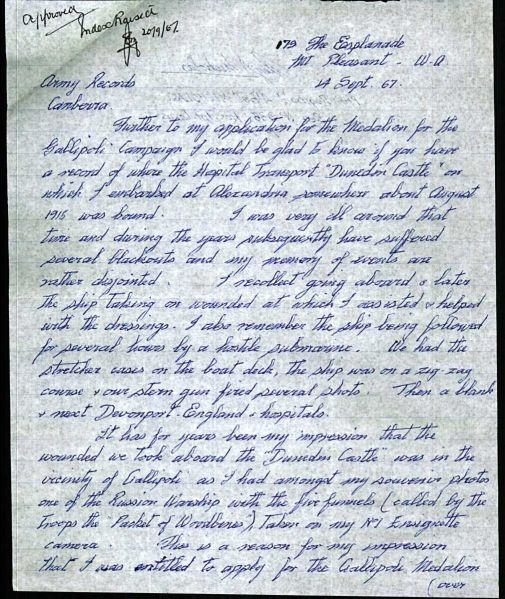 Approved
Index Raised
20/9/67
179 The Esplanade
Mt Pleasant - W-A
Army Records
14 Sept. 67.
Canberra.
Further to my application for the Medalion for the
Gallipoli Campaign I would be glad to know if you have
a record of where the Hospital Transport "Dunedin Castle" on
which I embarked at Alexandria somewhere about August
1915 was bound. I was very ill around that
time and during the years subsequently have suffered
several blackouts and my memory of events are
rather disjointed. I recollect going aboard & later
the ship taking on wounded at which I assisted & helped
with the dressings. I also remember the ship being followed
for several hours by a hostile submarine. We had the
stretcher cases on the boat deck, the ship was on a zig-zag
course & our stern gun fired several shots. Then a blank
& next Devonport - England & hospitals.
It has for years been my impression that the
wounded we took aboard the "Dunedin Castle" was in the
vicinity of Gallipoli as I had amongst my souvenir photos
one of the Russian Warship with the five funnels (called by the
troops the Packet of Woodbines), taken on my No 1 Ensignette
camera. This is a reason for my impression
that I was entitled to apply for the Gallipoli Medalion
(over